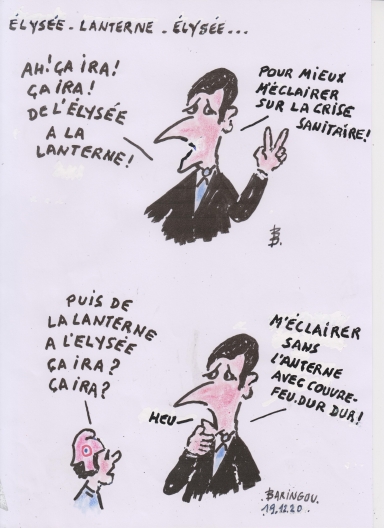 ÉLYSÉE - LANTERNE - ÉLYSÉE...
AH! ÇA IRA!
ÇA IRA!
DE L'ÉLYSÉE
A LA
LANTERNE!
POUR MIEUX
M'ÉCLAIRER
SUR LA CRISE
SANITAIRE!
B.
PUIS DE
LA LANTERNE
A L'ELYSÉE
ÇA IRA?
ÇA IRA?
M'ÉCLAIRER
SANS
L'ANTERNE
AVEC COUVRE-
FEU. DUR DUR!
HEU
BARINGOU.
19.12.20.